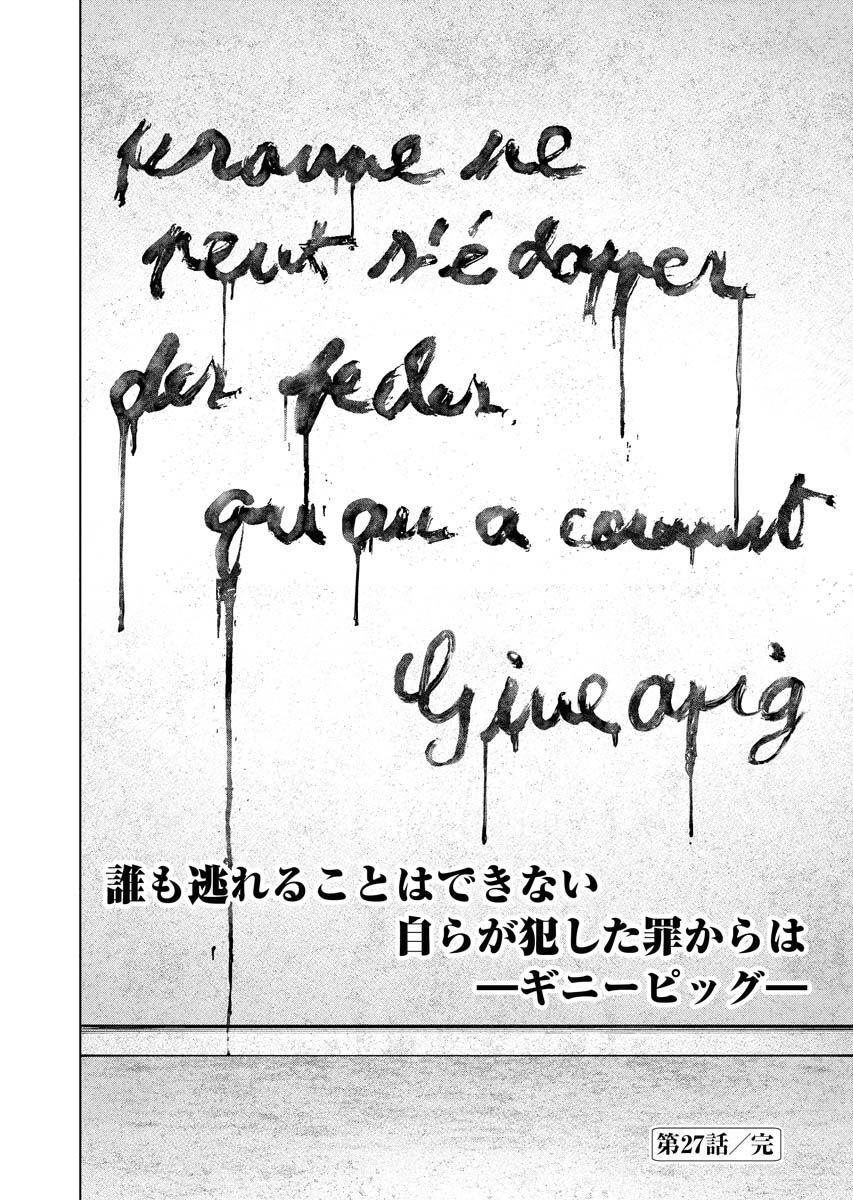 peronne ne
peut s'édapper
des feder
qu'on a commit
Gineapig
誰も逃れることはできない
自らが犯した罪からは
―ギニーピッグ―
第27話／完